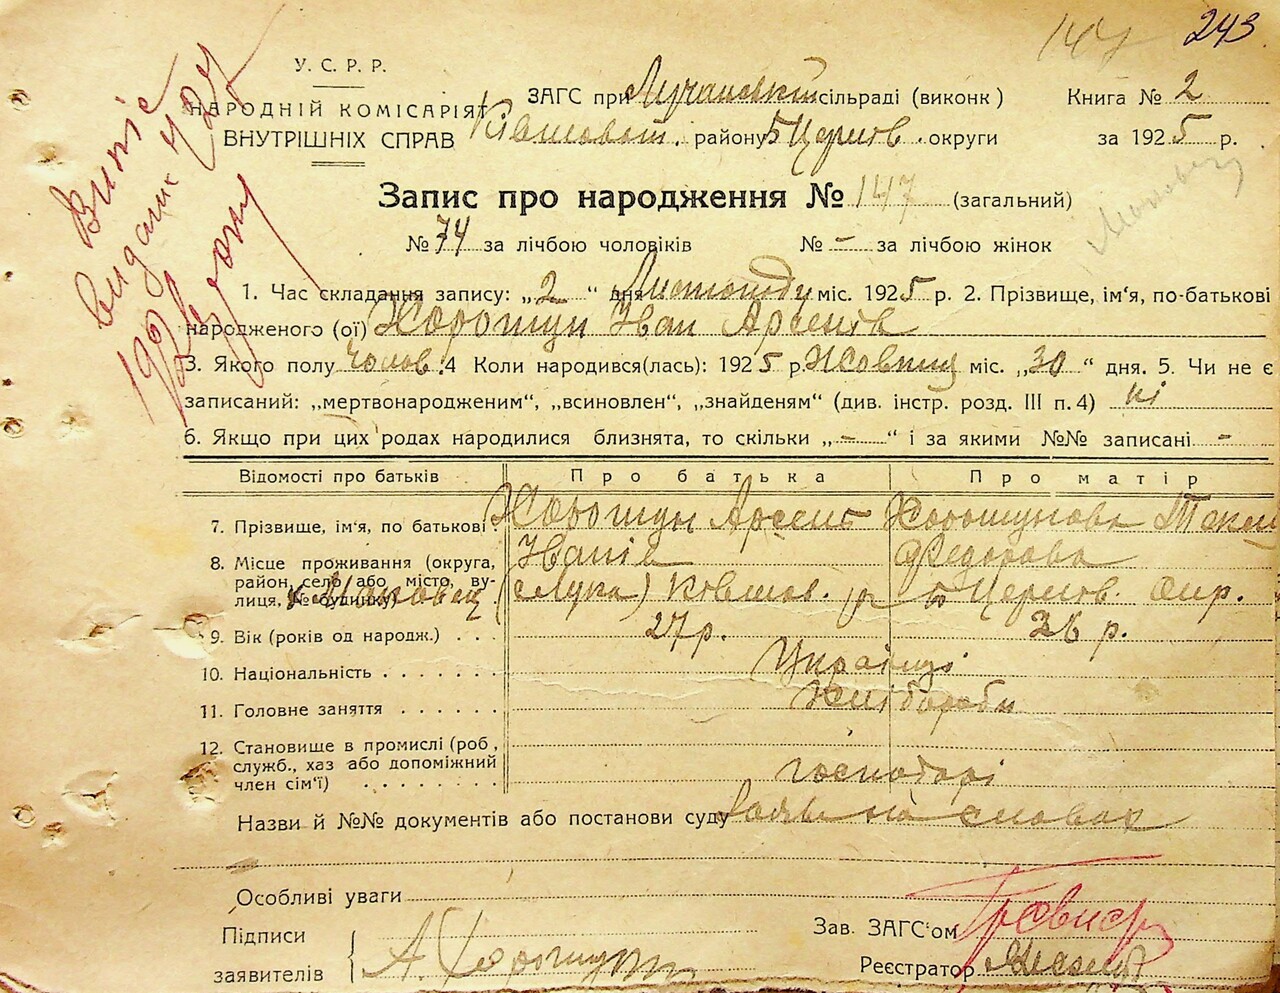 243
У. С. Р. Р.
НАРОДНІЙ КОМІСАРІЯТ
ВНУТРІШНІХ СПРАВ
ЗАГС при Лучанській сільраді (виконк)
Книга № 2
Ківшоват. району Б Церків. округи
за 1925 р.
Запис про народження № 147 (загальний)
№ 74 за лічбою чоловіків № – за лічбою жінок
1. Час складання запису: „2“ дня Листопаду міс. 1925 р. 2. Прізвище, ім'я, по-батькові
народженого (ої) Хорошун Іван Арсенів
3. Якого полу чолов. 4 Коли народився(лась): 1925 р. Жовтня міс. „30“ дня. 5. Чи не є
записаний: „мертвонародженим“, „всиновлен“, „знайденям“ (див. інстр. розд. III п. 4) ні
6. Якщо при цих родах народилися близнята, то скільки „–“ і за якими №№ записані –
Відомості про батьків Про батька Про матір
7. Прізвище, ім'я, по батькові. Хорошун Арсент Хорошунова
Іванів Федорова
8. Місце проживання (округа, район, село або місто, вулиця, № будинку)
(Лука) Ківшов. р Б Церків. окр.
9. Вік (років од народж.) . . . 27 р. 26 р.
10. Національність . . . . . . . Українці
11. Головне заняття . . . . . . Хлібороби
12. Становище в промислі (роб, служб., хаз або допоміжний член сім'ї) . . . . . . . . господарі
Назви й №№ документів або постанови суду Заява на словах
Особливі уваги
Підписи
заявителів А. Хорошун
Зав. ЗАГС'ом
Реєстратор
Випис
видано